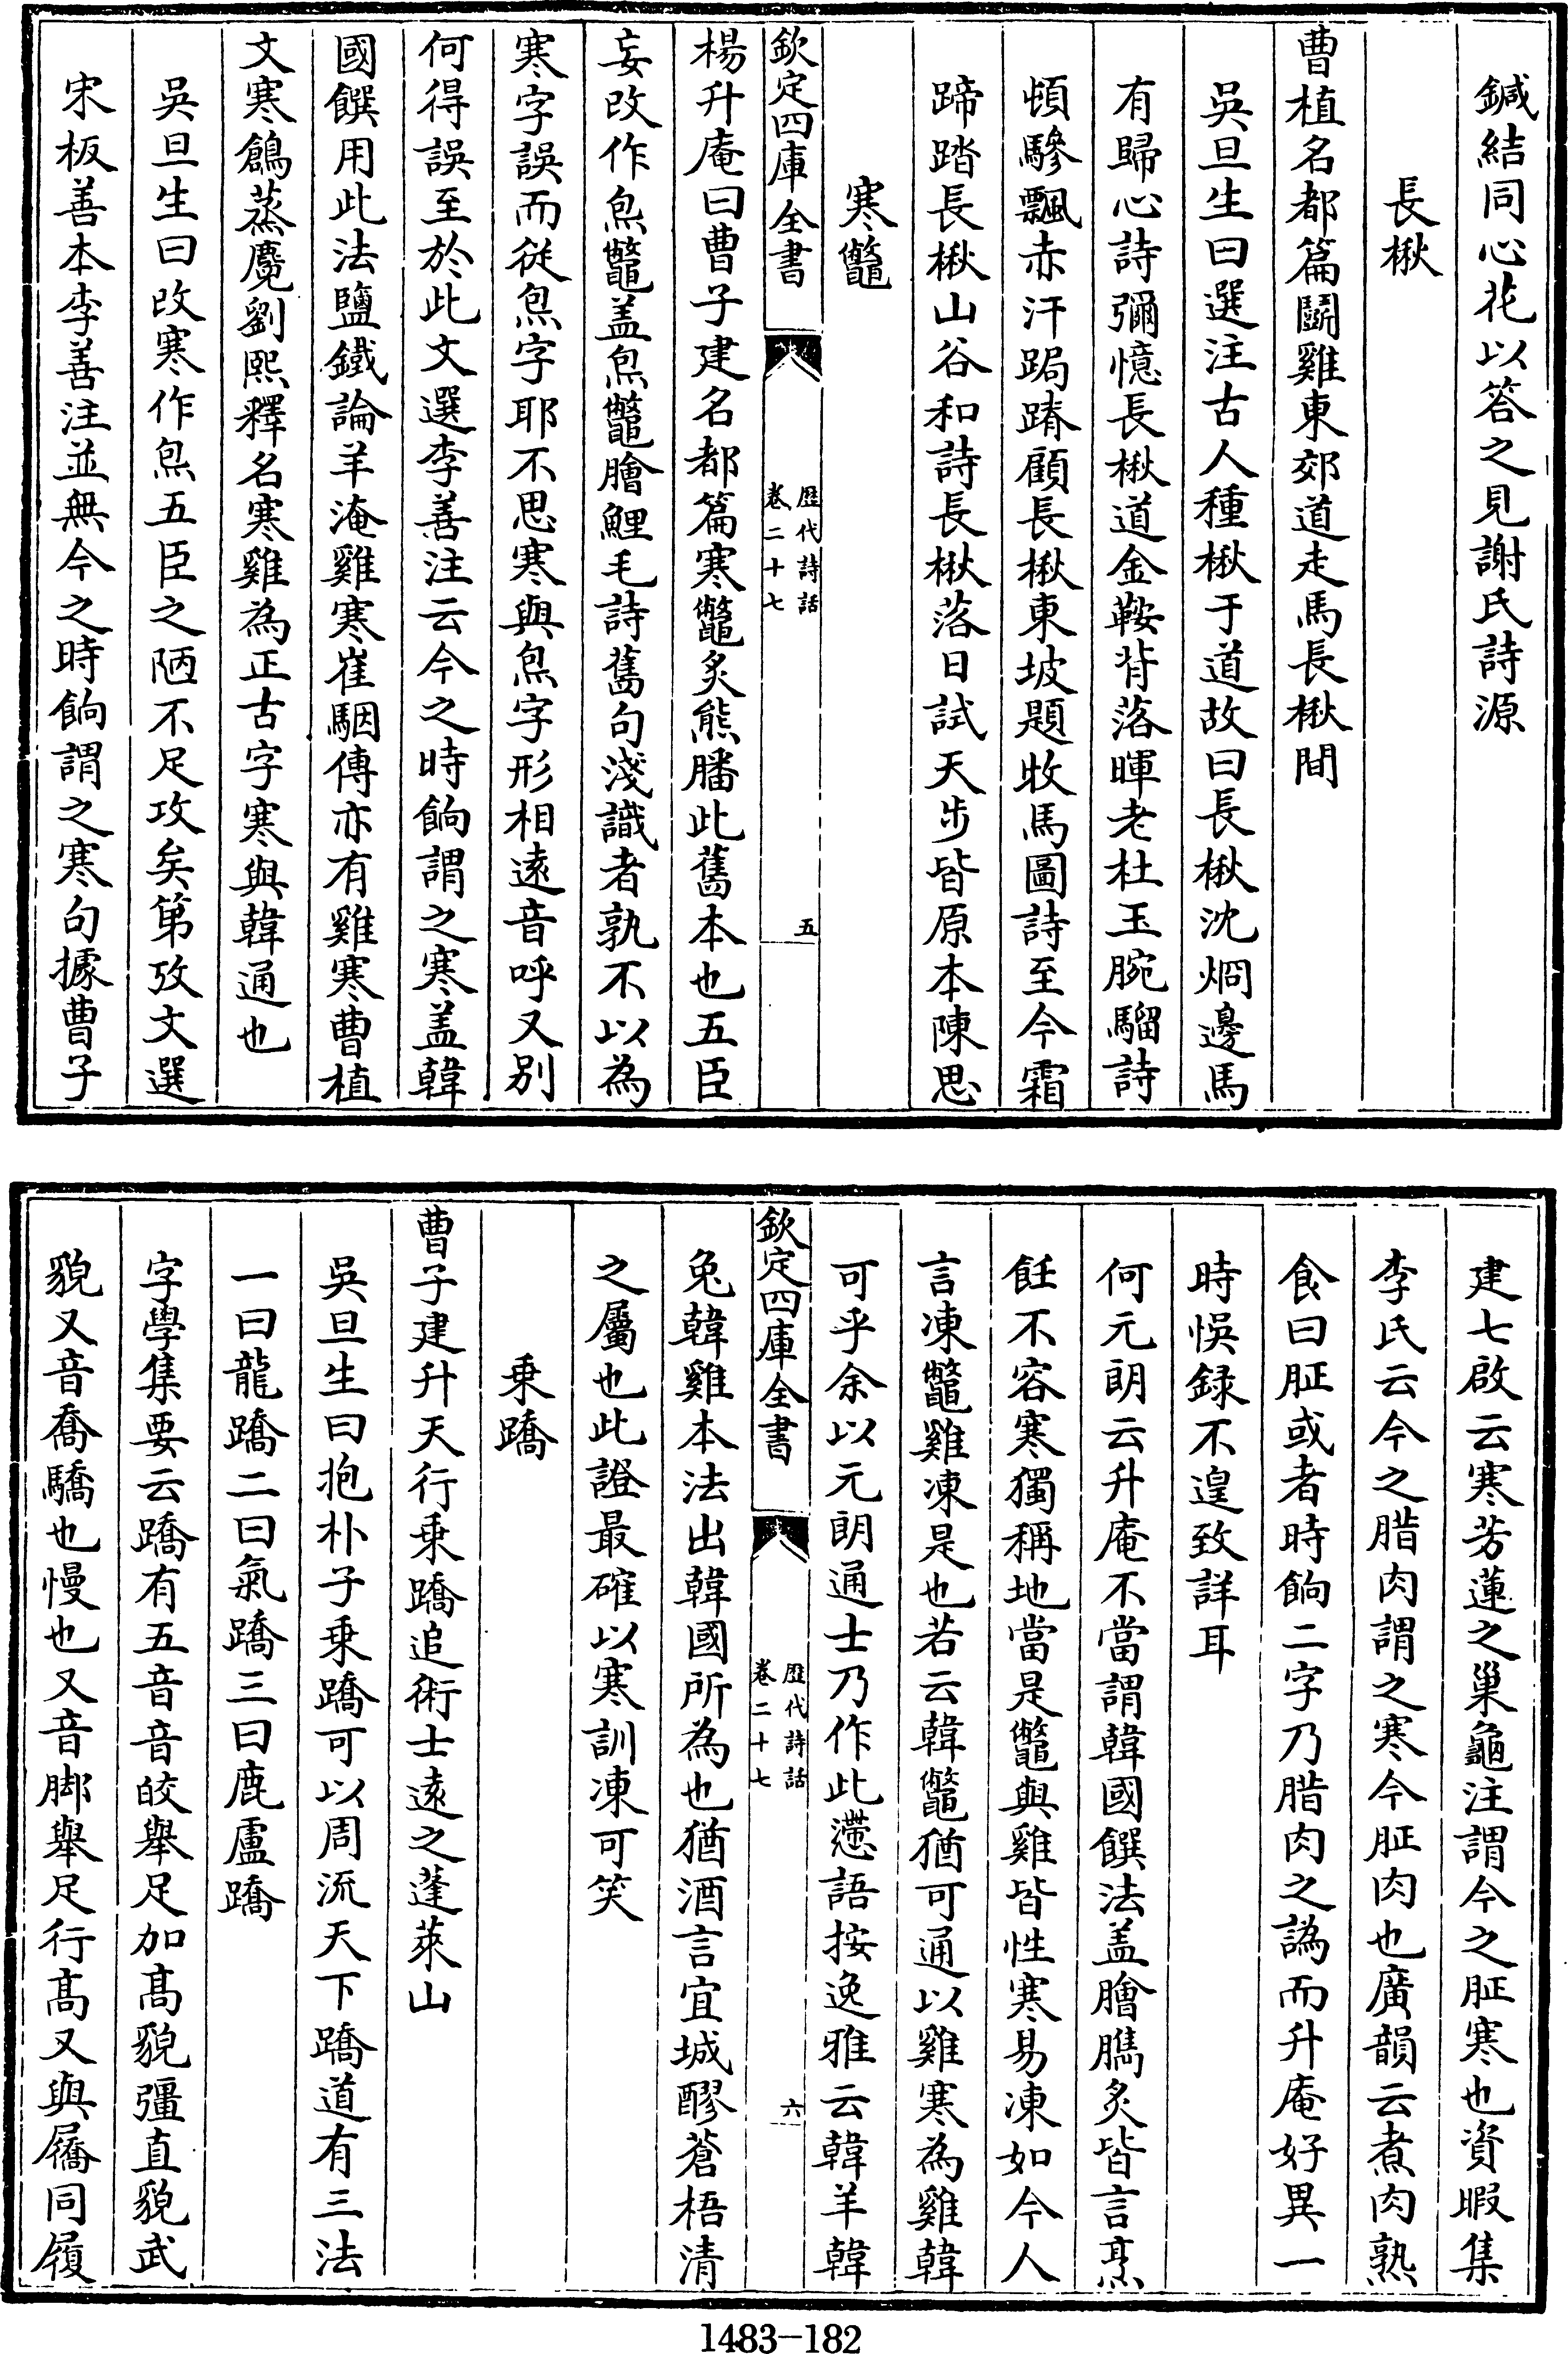 鍼結同心花以答之見謝氏詩源
長楸
曹植名都篇鬭雞東郊道走馬長楸間
吳旦生曰選注古人種楸于道故曰長楸沈烱邊馬
有歸心詩彌憶長楸道金鞍背落暉老杜玉腕騮詩
頓驂飄赤汗跼蹐顧長楸東坡題牧馬圖詩至今霜
蹄踏長楸山谷和詩長楸落日試天步皆原本陳思
寒鼈
欽定四庫全書
歷代詩話
卷二十七
五
楊升庵曰曹子建名都篇寒鼈炙熊膰此舊本也五臣
妄改作炰鼈盖炰鼈膾鯉毛詩舊句淺識者孰不以為
寒字誤而從炰字耶不思寒與炰字形相遠音呼又别
何得誤至於此文選李善注云今之時餉謂之寒盖韓
國饌用此法鹽鐵論羊淹雞寒崔駰傳亦有雞寒曹植
文寒鶬蒸麑劉熙釋名寒雞為正古字寒與韓通也
吳旦生曰改寒作炰五臣之陋不足攻矣第攷文選
宋板善本李善注並無今之時餉謂之寒句據曹子
建七啟云寒芳蓮之巢龜注謂今之䏑寒也資暇集
李氏云今之腊肉謂之寒今䏑肉也廣韻云煮肉熟
食曰䏑或者時餉二字乃腊肉之譌而升庵好異一
時悞録不遑致詳耳
何元朗云升庵不當謂韓國饌法盖膾臇炙皆言烹
飪不容寒獨稱地當是鼈與雞皆性寒易凍如今人
言凍鼈雞凍是也若云韓鼈猶可通以雞寒為雞韓
可乎余以元朗通士乃作此懘語按逸雅云韓羊韓
欽定四庫全書
歷代詩話
卷二十七
六
兔韓雞本法出韓國所為也猶酒言宜城醪蒼梧清
之屬也此證最確以寒訓凍可笑
乗蹻
曹子建升天行乗蹻追術士遠之蓬萊山
吳旦生曰抱朴子乗蹻可以周流天下蹻道有三法
一曰龍蹻二曰氣蹻三曰鹿盧蹻
字學集要云蹻有五音音皎舉足加髙貌彊直貌武
貌又音喬驕也慢也又音脚舉足行髙又與屩同履
1483-182